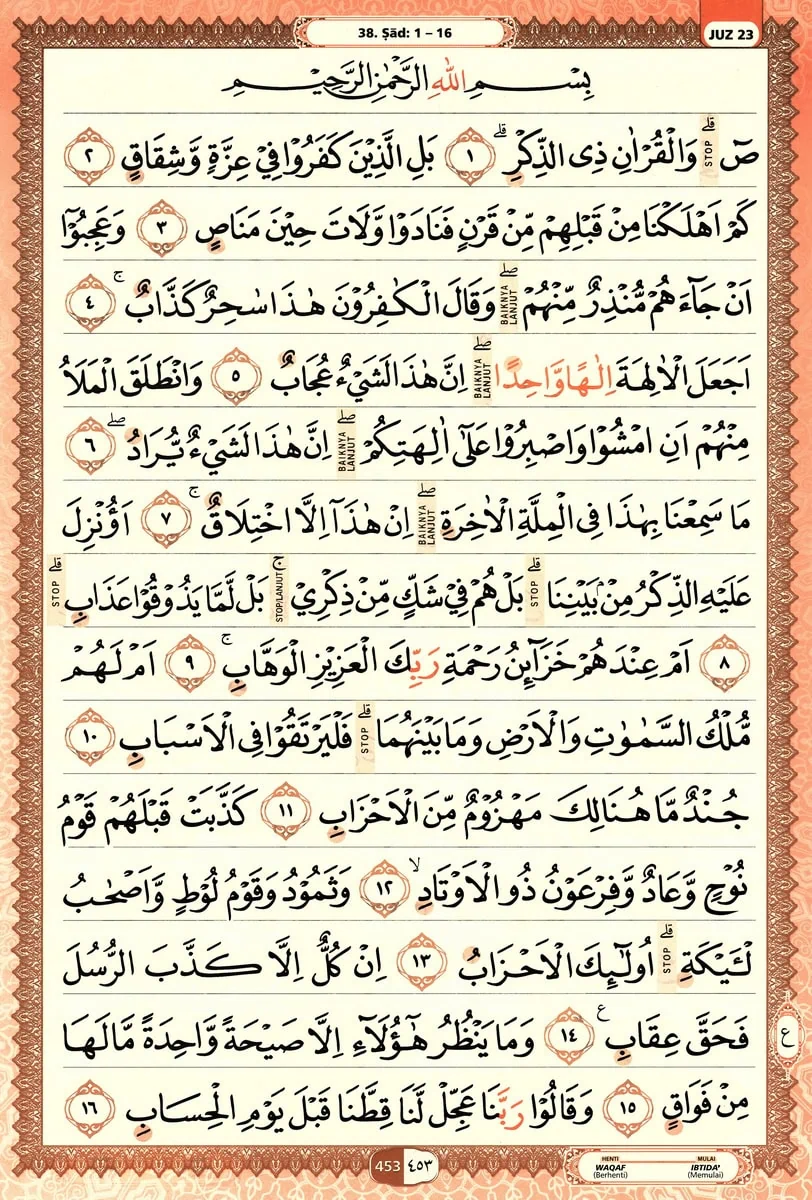 38. Ṣād: 1 – 16
JUZ 23
بِسْمِ اللّٰهِ الرَّحْمٰنِ الرَّحِيْمِ
صۤ ۗ STOP وَالْقُرْاٰنِ ذِى الذِّكْرِۗ ١ بَلِ الَّذِيْنَ كَفَرُوْا فِيْ عِزَّةٍ وَّشِقَاقٍ ٢
كَمْ اَهْلَكْنَا مِنْ قَبْلِهِمْ مِّنْ قَرْنٍ فَنَادَوْا وَّلَاتَ حِيْنَ مَنَاصٍ ٣ وَعَجِبُوْٓا
اَنْ جَاۤءَهُمْ مُّنْذِرٌ مِّنْهُمْ ۖ BAIKNYA LANJUT وَقَالَ الْكٰفِرُوْنَ هٰذَا سٰحِرٌ كَذَّابٌۚ ٤
اَجَعَلَ الْاٰلِهَةَ اِلٰهًا وَّاحِدًا ۖ BAIKNYA LANJUT اِنَّ هٰذَا لَشَيْءٌ عُجَابٌ ٥ وَانْطَلَقَ الْمَلَاُ
مِنْهُمْ اَنِ امْشُوْا وَاصْبِرُوْا عَلٰٓى اٰلِهَتِكُمْ ۖ BAIKNYA LANJUT اِنَّ هٰذَا لَشَيْءٌ يُّرَادُۖ ٦
مَا سَمِعْنَا بِهٰذَا فِى الْمِلَّةِ الْاٰخِرَةِ ۖ BAIKNYA LANJUT اِنْ هٰذَآ اِلَّا اخْتِلَاقٌۚ ٧ اَؤُنْزِلَ
عَلَيْهِ الذِّكْرُ مِنْۢ بَيْنِنَا ۗ STOP بَلْ هُمْ فِيْ شَكٍّ مِّنْ ذِكْرِيْ ۚ STOP/LANJUT بَلْ لَّمَّا يَذُوْقُوْا عَذَابِ ۗ STOP
٨ اَمْ عِنْدَهُمْ خَزَاۤىِٕنُ رَحْمَةِ رَبِّكَ الْعَزِيْزِ الْوَهَّابِۚ ٩ اَمْ لَهُمْ
مُّلْكُ السَّمٰوٰتِ وَالْاَرْضِ وَمَا بَيْنَهُمَا ۗ STOP فَلْيَرْتَقُوْا فِى الْاَسْبَابِ ١٠
جُنْدٌ مَّا هُنَالِكَ مَهْزُوْمٌ مِّنَ الْاَحْزَابِ ١١ كَذَّبَتْ قَبْلَهُمْ قَوْمُ
نُوْحٍ وَّعَادٌ وَّفِرْعَوْنُ ذُو الْاَوْتَادِۙ ١٢ وَثَمُوْدُ وَقَوْمُ لُوْطٍ وَّاَصْحٰبُ
لْـَٔيْكَةِ ۗ STOP اُولٰۤىِٕكَ الْاَحْزَابُ ١٣ اِنْ كُلٌّ اِلَّا كَذَّبَ الرُّسُلَ
فَحَقَّ عِقَابِ ࣖ ١٤ وَمَا يَنْظُرُ هٰٓؤُلَاۤءِ اِلَّا صَيْحَةً وَّاحِدَةً مَّا لَهَا
ع
مِنْ فَوَاقٍ ١٥ وَقَالُوْا رَبَّنَا عَجِّلْ لَّنَا قِطَّنَا قَبْلَ يَوْمِ الْحِسَابِ ١٦
453 ٤٥٣
HENTI MULAI
WAQAF IBTIDA'
(Berhenti) (Memulai)